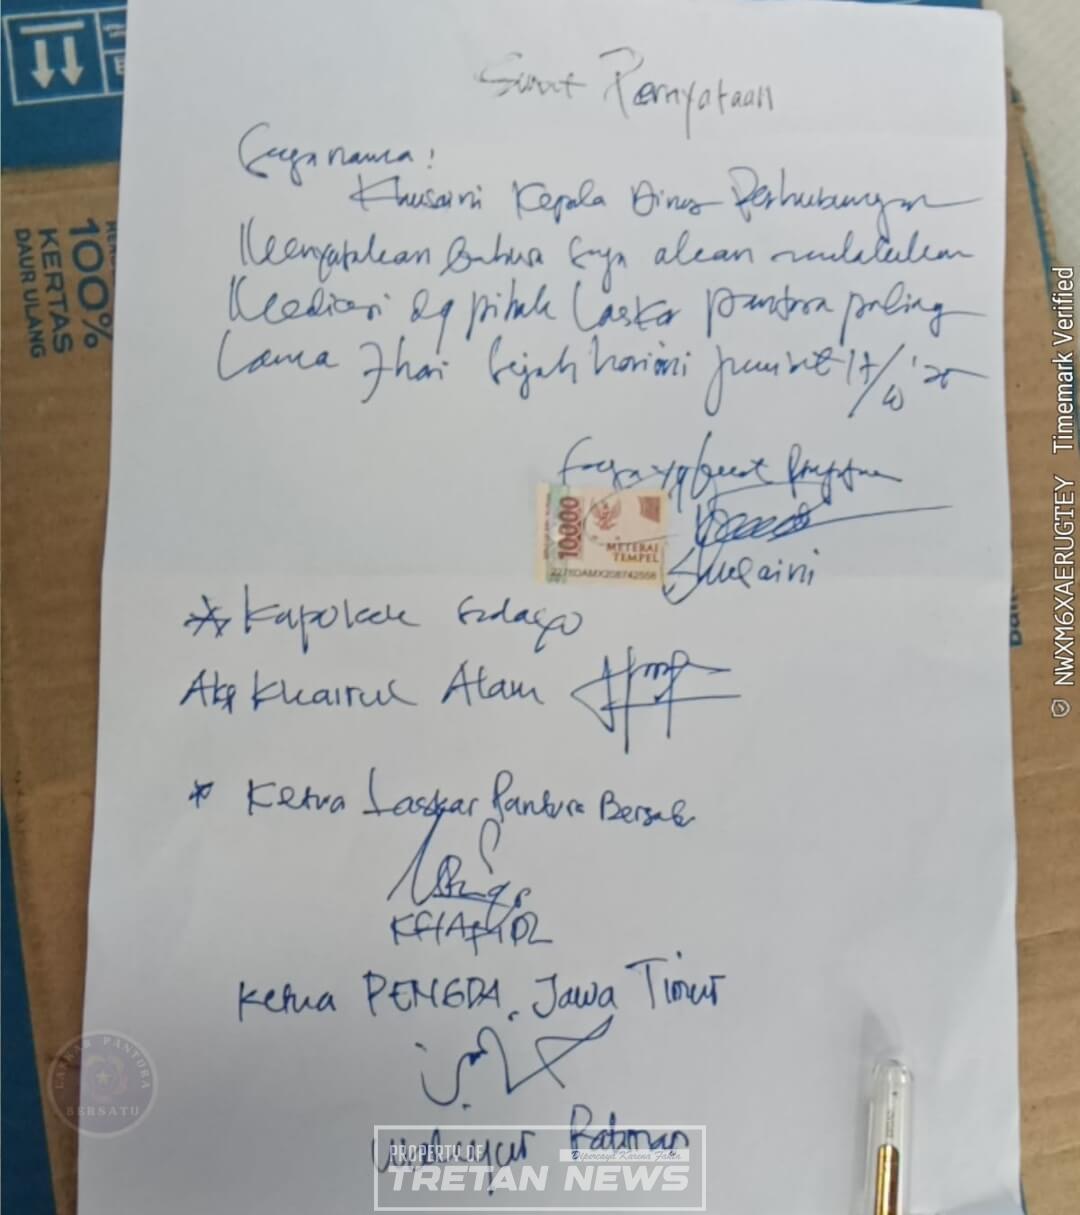 Surat Pernyataan
Saya nama :
Khusaini Kepala Dinas Perhubungan
Menyatakan bahwa saya akan melakukan
Mediasi dg pihak Laskar pantura paling
Lama 7 hari sejak hari ini
Saya yg buat
10.000
METERAI
TEMPEL
Khusaini
* Kapolsek Sidayu
Akp Khairul Alam
* Ketua Laskar Pantura Bersatu
Ketua PENGDA. Jawa Timur
Rahman
100%
KERTAS
DAUR ULANG
NWXM6XAERUGTEY Timemark Verified
LASKAR PANTURA
BERSATU
PROPERTY OF
Dipercaya Karena Fakta
TRETAN NEWS